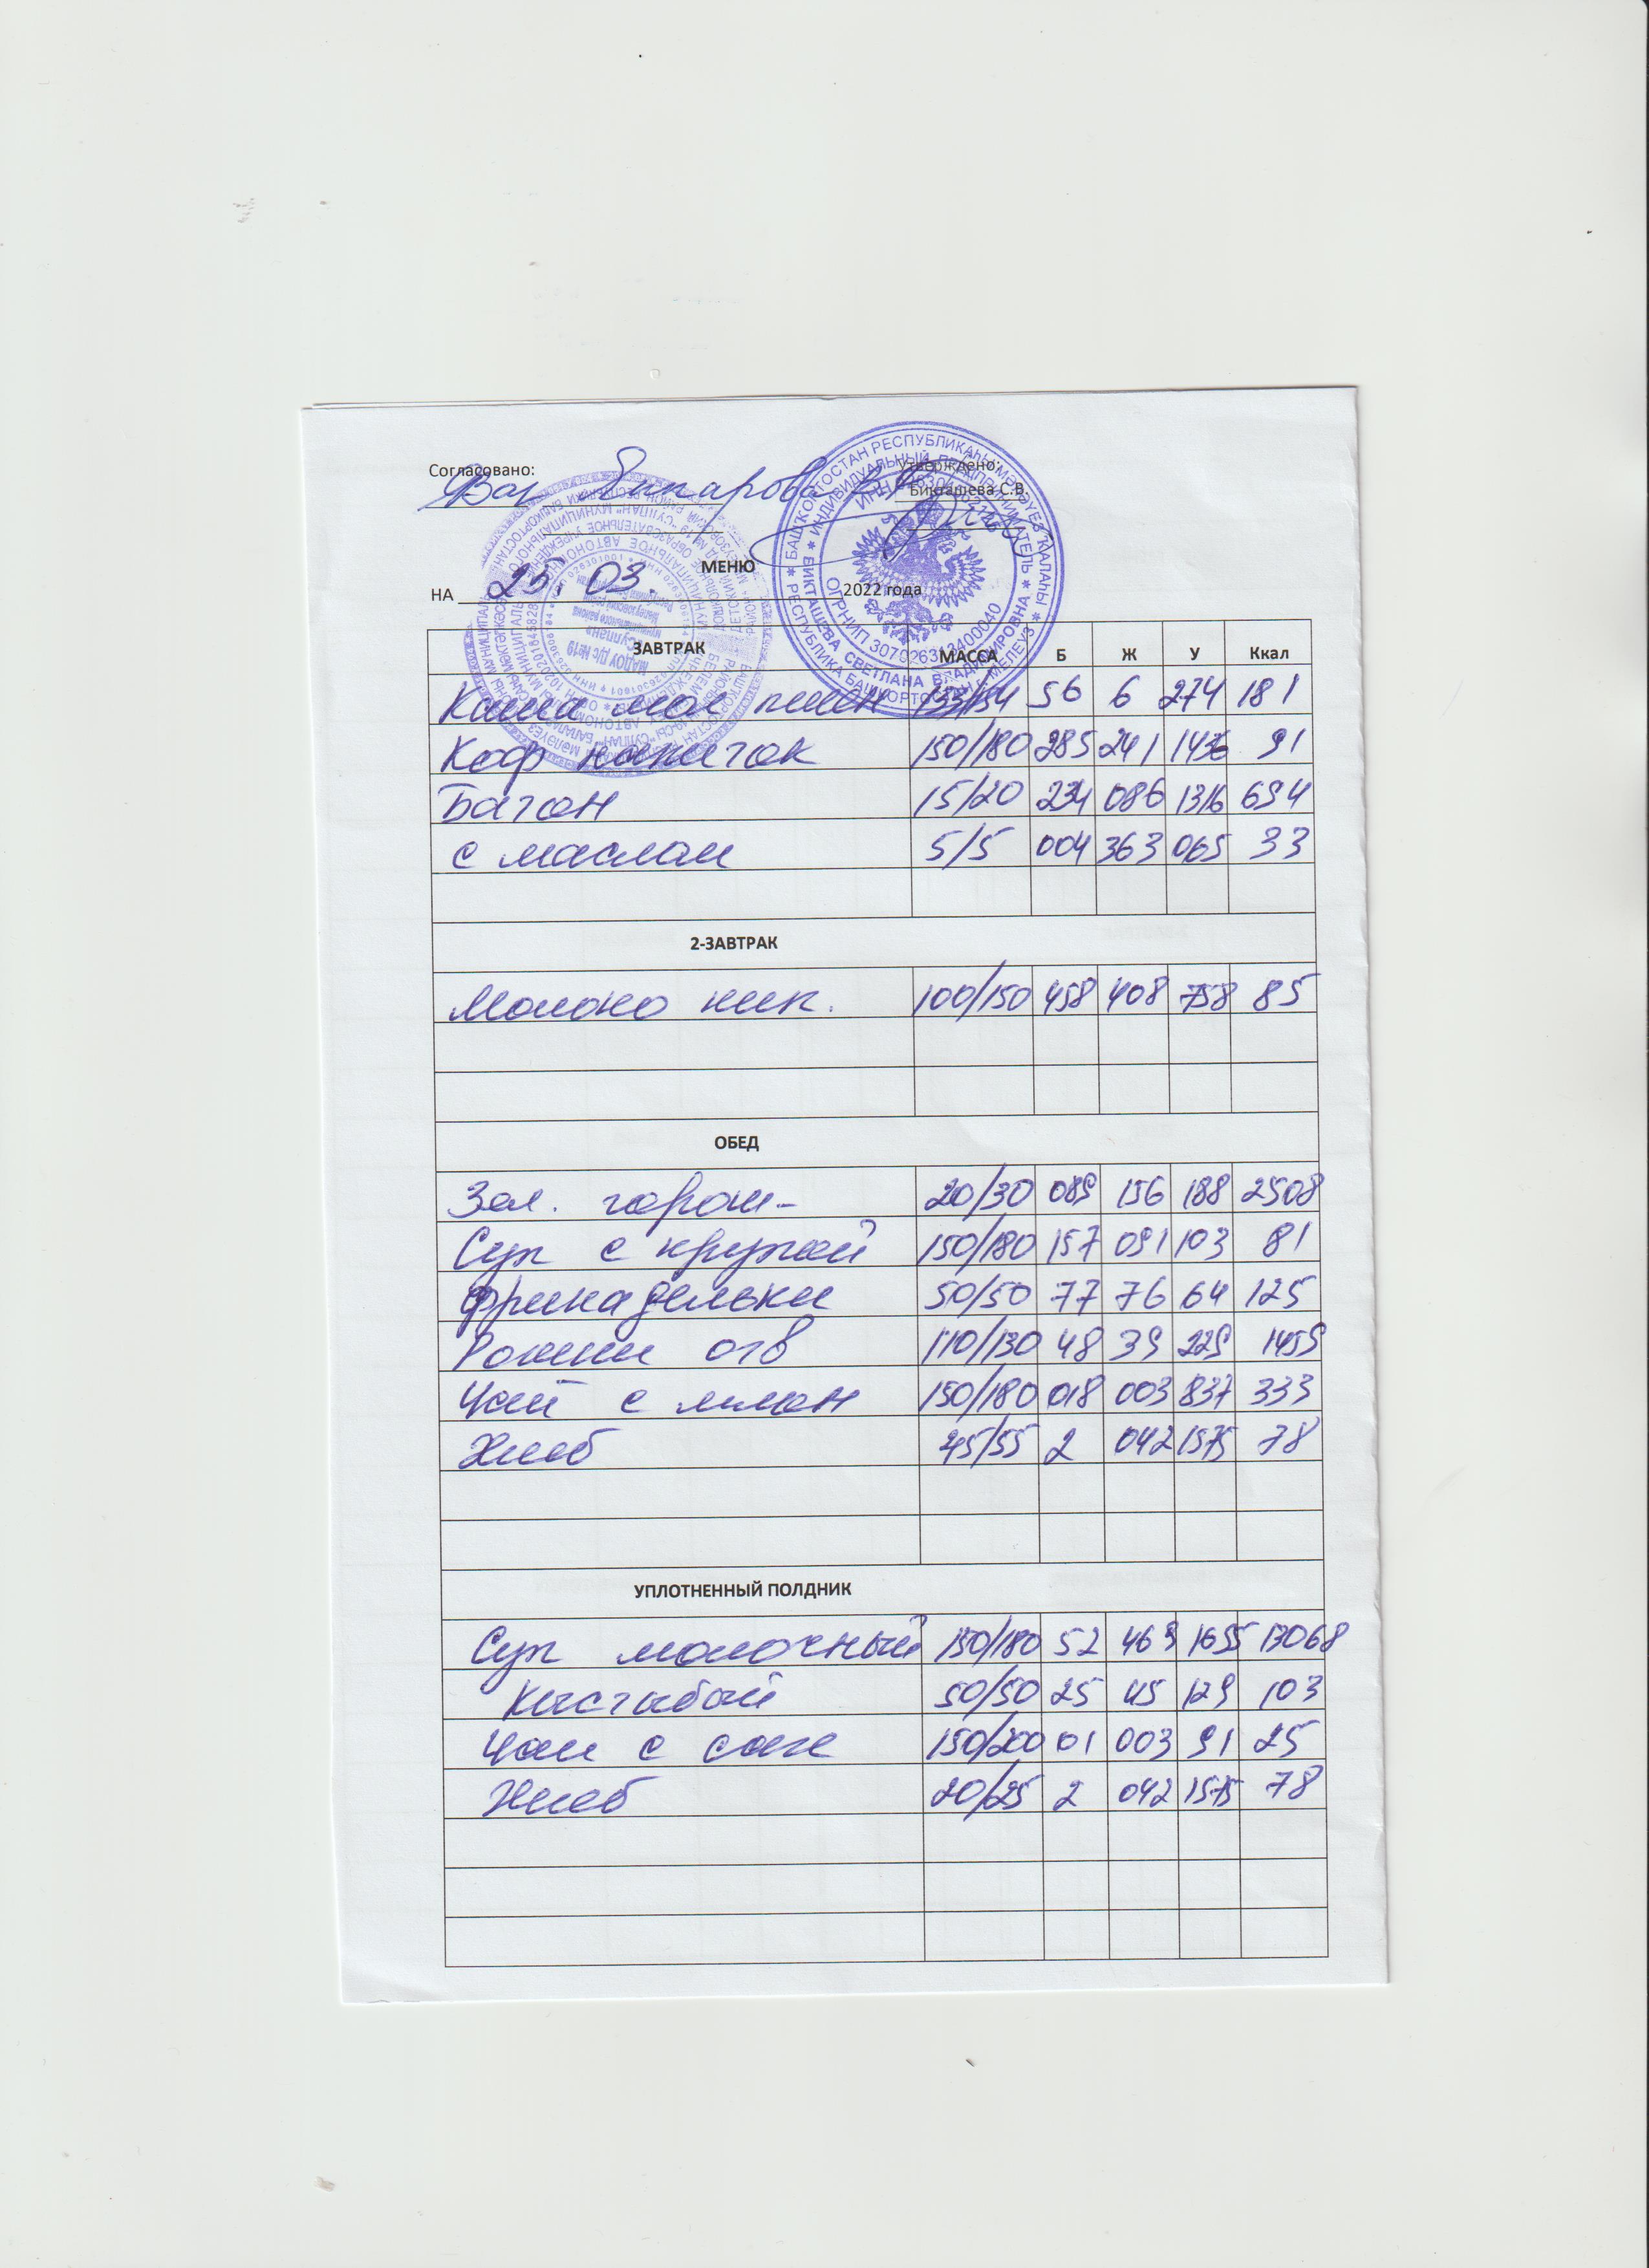 Согласовано: Утверждено:
Бикташева С.В.
МЕНЮ
НА 25.03. 2022 года
ЗАВТРАК МАССА Б Ж У Ккал
Каша мол пшен 133/154 56 6 274 181
Коф напиток 150/180 285 241 1436 91
Батон 15/20 234 086 1316 694
с маслом 5/5 004 363 065 33
2-ЗАВТРАК
Молоко кип. 100/150 458 408 758 85
ОБЕД
Зел. горош- 20/30 089 156 188 2508
Суп с крупой 150/180 157 091 103 81
фрикадельки 50/50 77 76 64 125
Рожки отв 110/130 48 39 229 1459
Чай с лимон 150/180 018 003 837 333
Хлеб 45/55 2 042 1575 78
УПЛОТНЕННЫЙ ПОЛДНИК
Суп молочный 150/180 52 469 1655 13068
Кыстыбый 50/50 25 45 129 103
Чай с сах 150/200 01 003 91 25
Хлеб 20/25 2 042 1575 78
БАШҠОРТОСТАН РЕСПУБЛИКАҺЫ МӘЛӘҮЕЗ ҠАЛАҺЫ
РЕСПУБЛИКА БАШКОРТОСТАН г. МЕЛЕУЗ
ИНДИВИДУАЛЬНЫЙ ПРЕДПРИНИМАТЕЛЬ
БИКТАШЕВА СВЕТЛАНА ВЛАДИМИРОВНА
ОГРНИП 307026313400040
МАДОУ Д/с №19